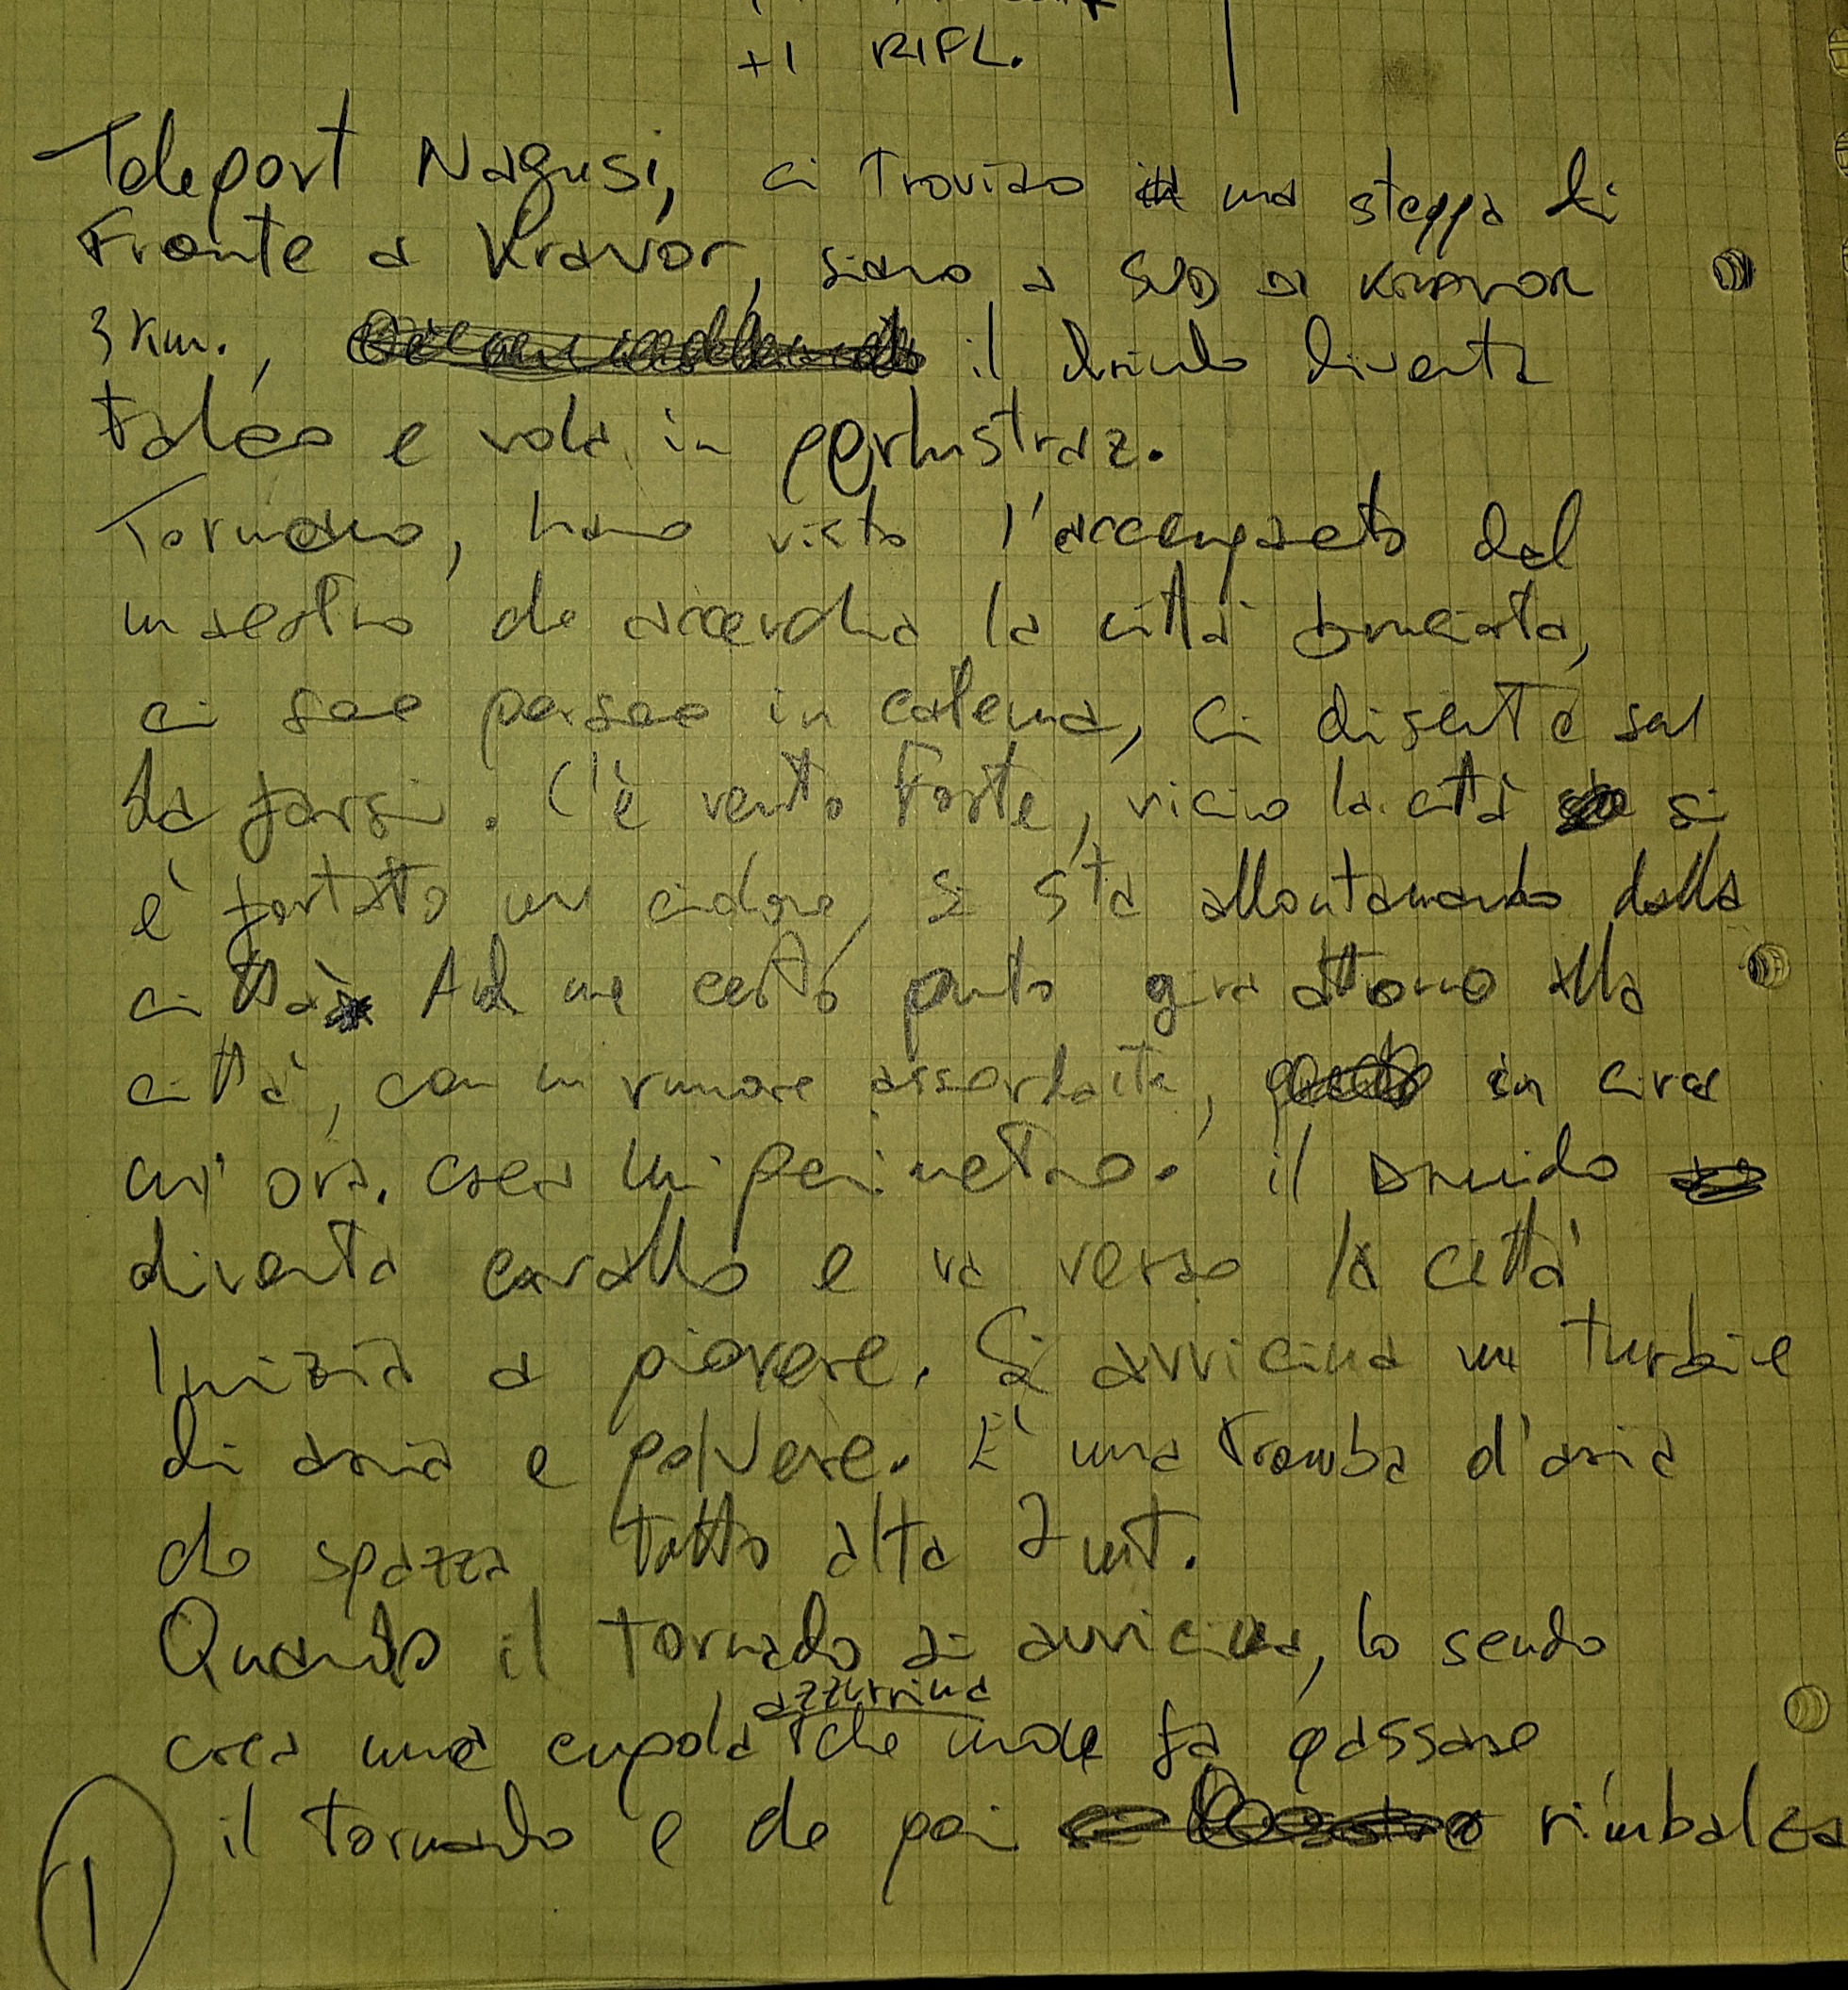 +1 RIFL.
Teleport Nagusi, ci troviamo in una steppa di
Fronte a Kravor, siamo a SUD DI KRAVOR
3 Km., il druido diventa
falco e vola in perlustraz.
Tornano, hanno visto l'accampamento del
maestro che accerchia la città bruciata,
ci sono persone in catena, ci disente sul
da farsi. C'è vento forte, vicino la città si
è formato un ciclone, si sta allontanando dalla
città. Ad un certo punto gira attorno alla
città, con un rumore assordante, in circa
un'ora. crea un perimetro. il Druido
diventa cavallo e va verso la città
Inizia a piovere. Si avvicina un turbine
di aria e polvere. E' una tromba d'aria
che spazza tutto alta 7 mt.
Quando il tornado si avvicina, lo scudo
crea una cupola azzurrina che non fa passare
il tornado e che poi rimbalza
1